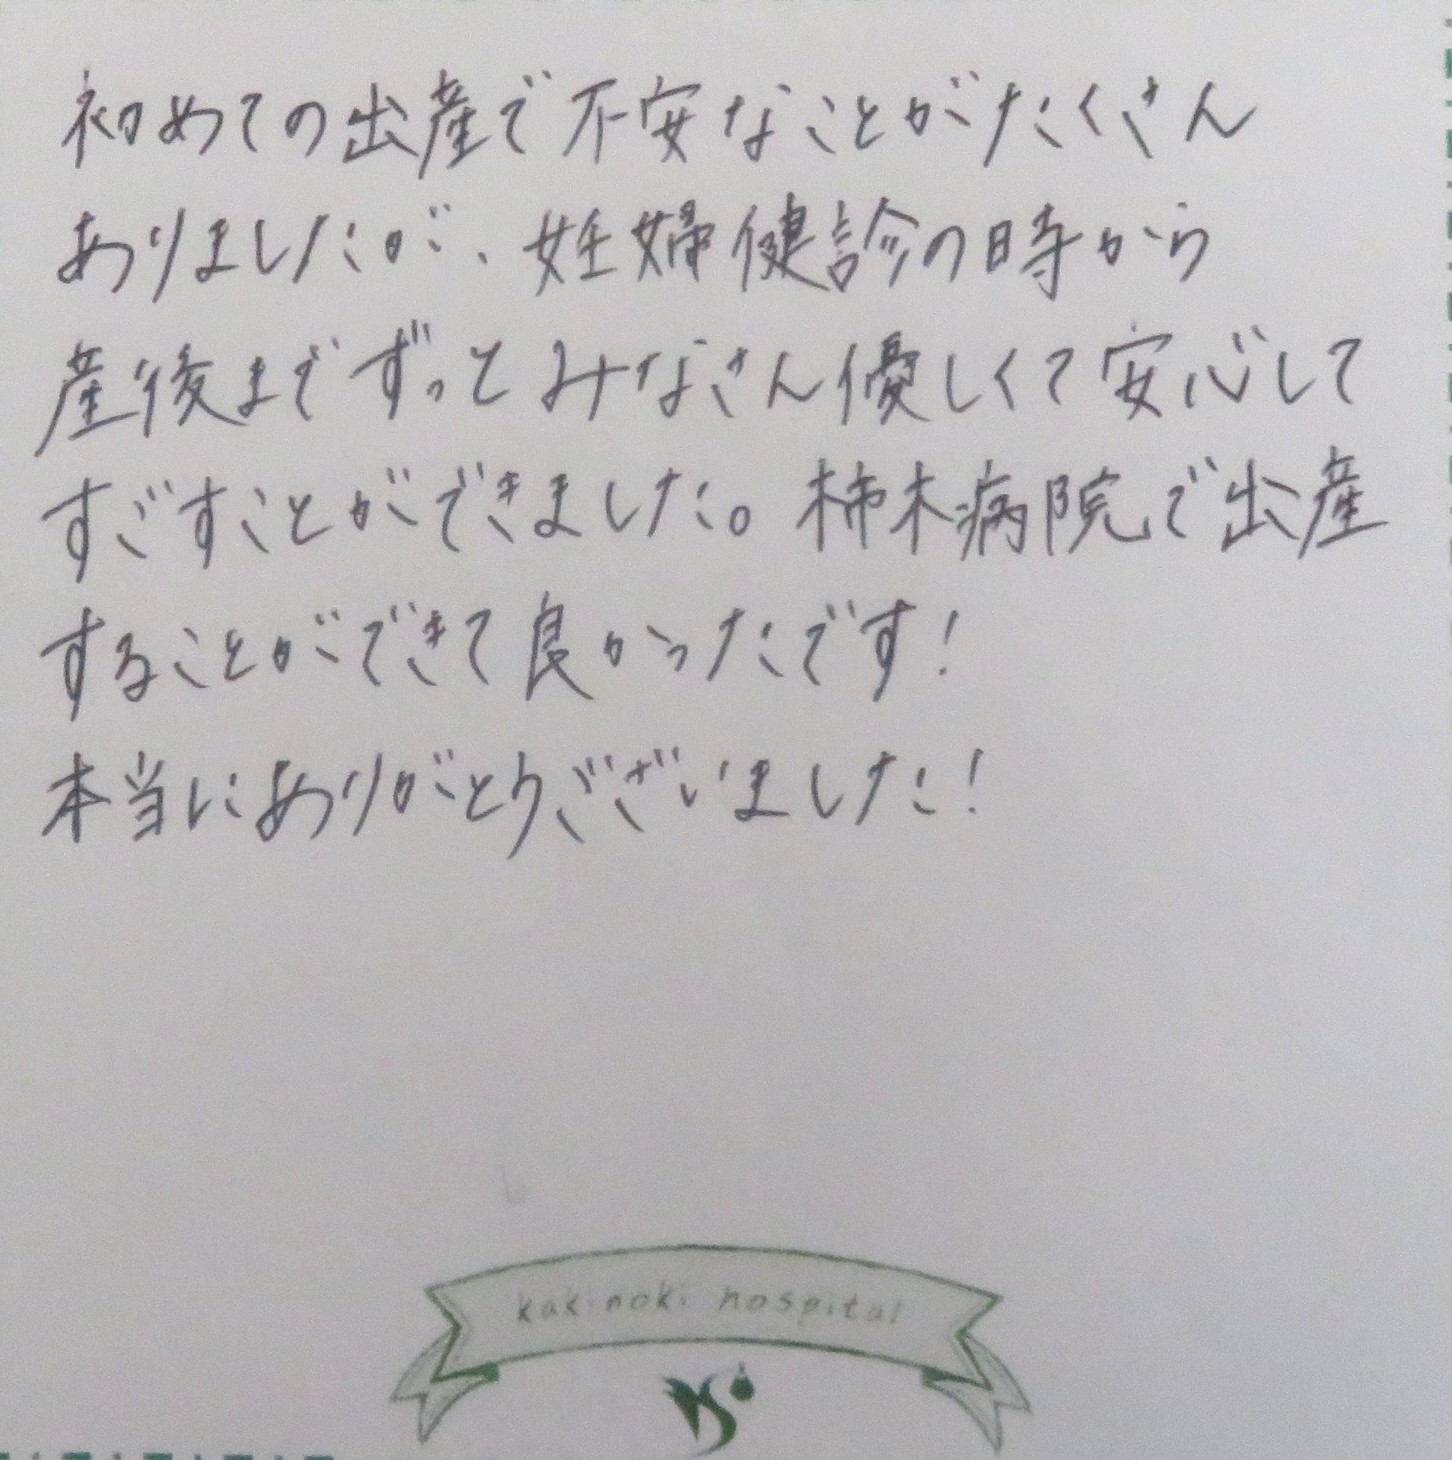 初めての出産で不安なことがたくさん
ありましたが、妊婦健診の時から
産後までずっとみなさん優しくて安心して
すごすことができました。柿木病院で出産
することができて良かったです！
本当にありがとうございました！
kakinoki hospital